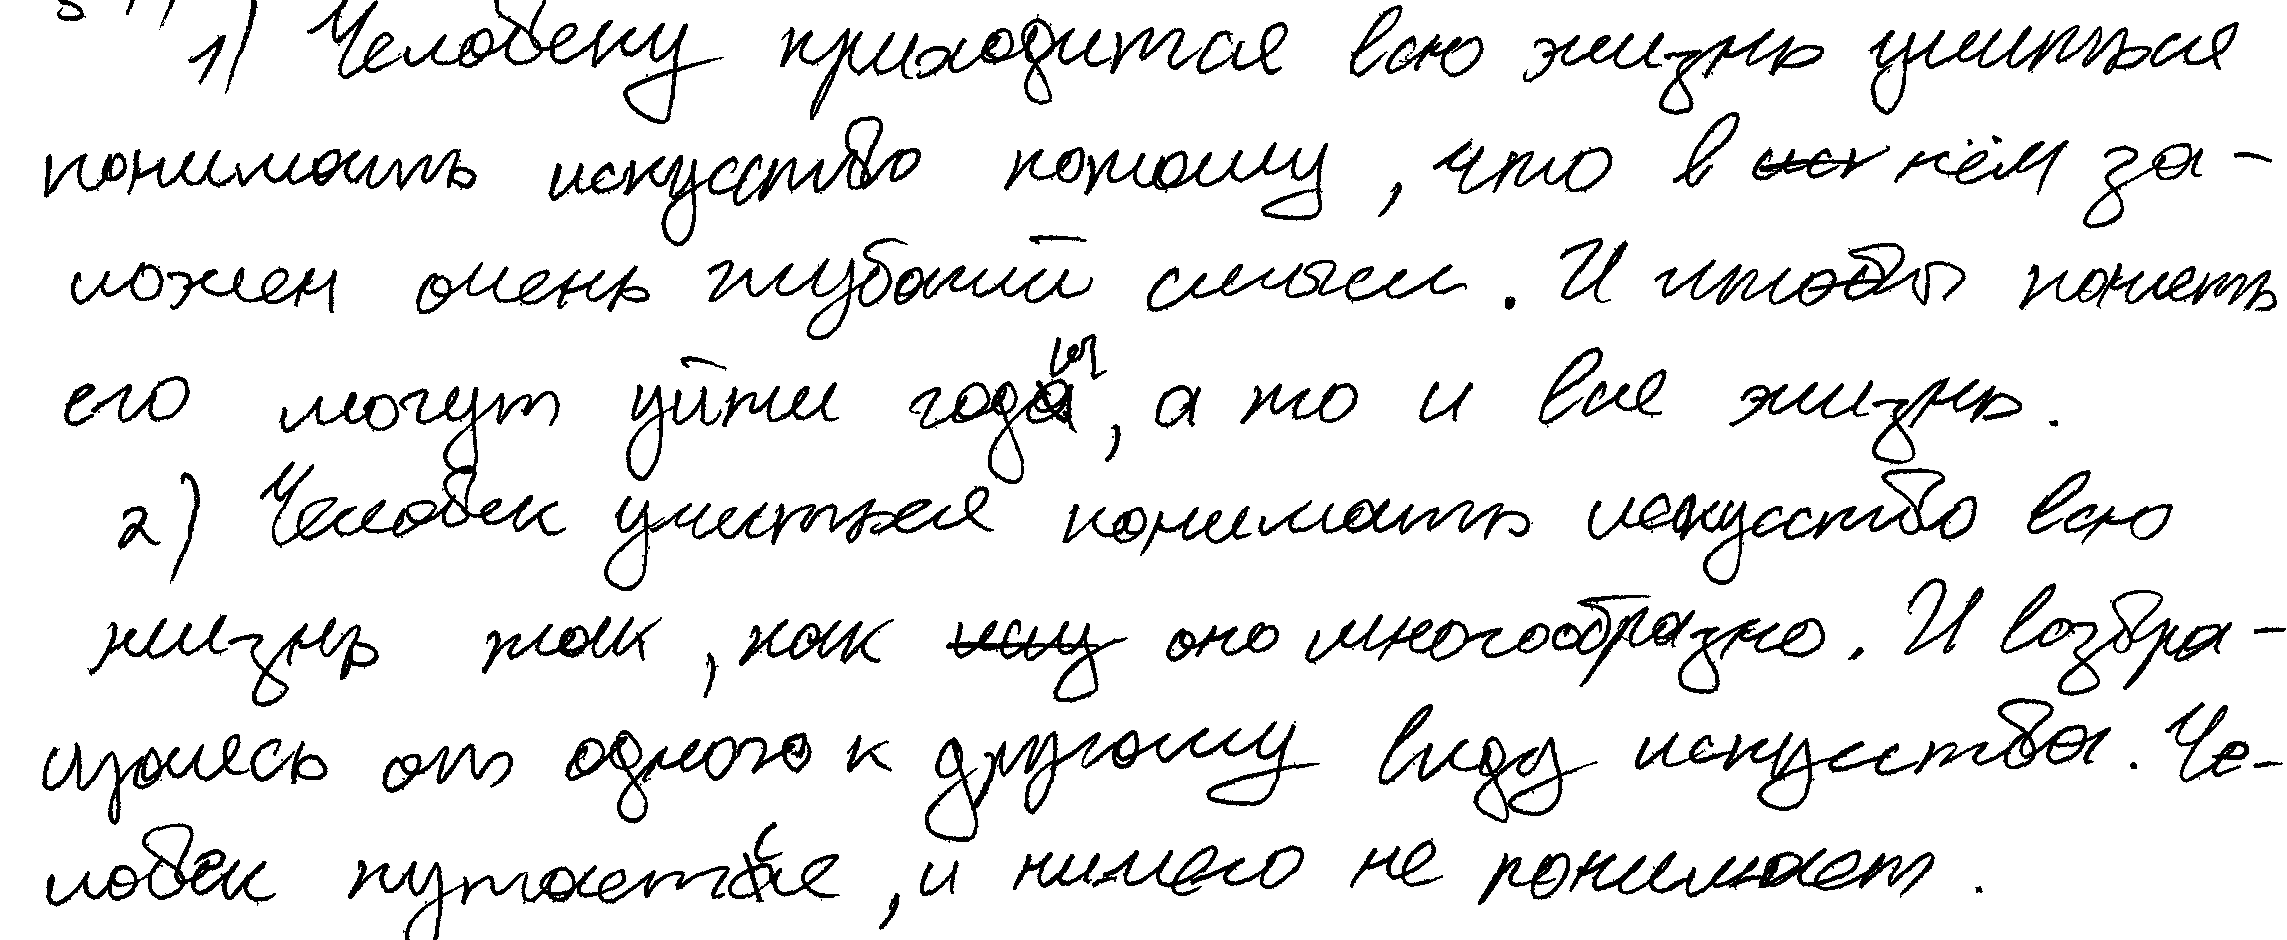 1) Человеку приходится всю жизнь учиться
понимать искусство потому, что в нём за-
ложен очень глубокий смысл. И чтобы понять
его могут уйти годы, а то и вся жизнь.
2) Человек учиться понимать искусство всю
жизнь так, как оно многообразно. И возвра-
щаясь от одного к другому виду искусства. Че-
ловек путается, и ничего не понимает.